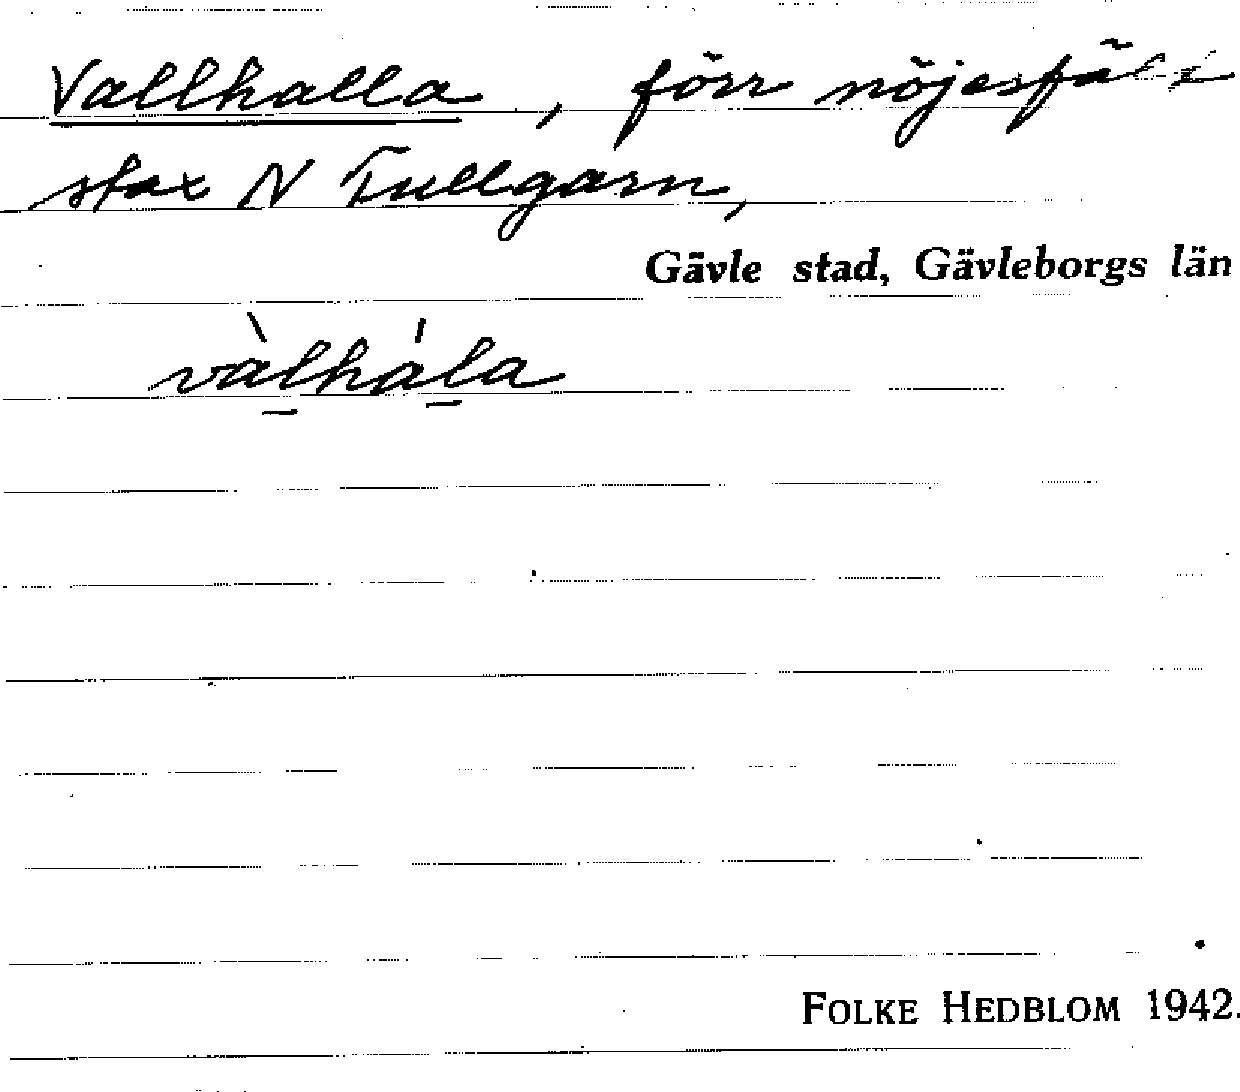 Vallhalla, förr nöjesfält
strax N Tullgarn,
Gävle stad, Gävleborgs län
vàlhála
FOLKE HEDBLOM 1942.